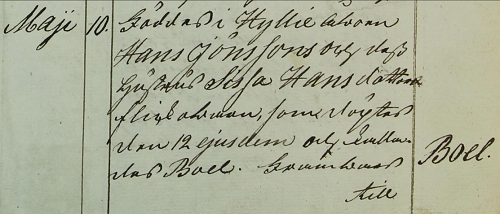 Maji 10. Föddes i Hyllie åboen
Hans Jönssons och dess
hustrus Sissa Hansdotters
flickebarn, som döptes
den 12 ejusdem och kalla-
des Boel. Boel.
till